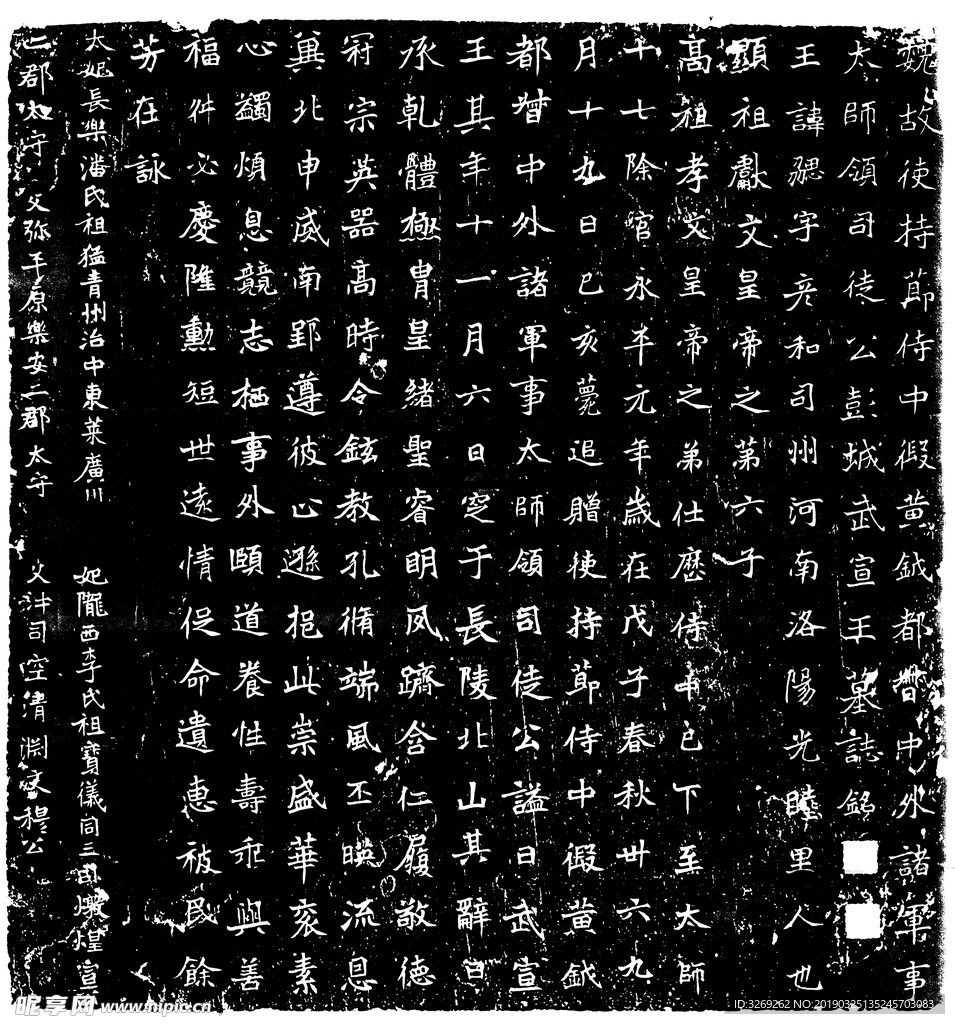 魏故使持節侍中假黄鉞都督中外諸軍事
太師領司徒公彭城武宣王墓誌銘
王諱勰字彦和司州河南洛陽光睦里人也
顯祖獻文皇帝之第六子
高祖孝文皇帝之弟仕歷侍中已下至太師
十七除官永平元年歲在戊子春秋卅六九
月十九日己亥薨追贈使持節侍中假黄鉞
都督中外諸軍事太師領司徒公謚曰武宣
王其年十一月六日窆于長陵北山其辭曰
承乾體極胄皇緒聖睿明夙躋含仁履敬德
冠宗英器高時令鉉教孔脩端風丕映流恩
冀北申威南郢遵彼止遜挹此崇盛華衮素
心蠲煩息競志栖事外頤道養性壽乖與善
福舛必慶隆勳短世遠情促命遺惠被民餘
芳在詠
太妃長樂潘氏祖猛青州治中東萊廣川
二郡太守 父弥平原樂安二郡太守
妃隴西李氏祖寶儀同三司燉煌宣
父沖司空清淵文穆公
昵享网 www.nipic.cn
ID:3269262 NO:20190325135245703083